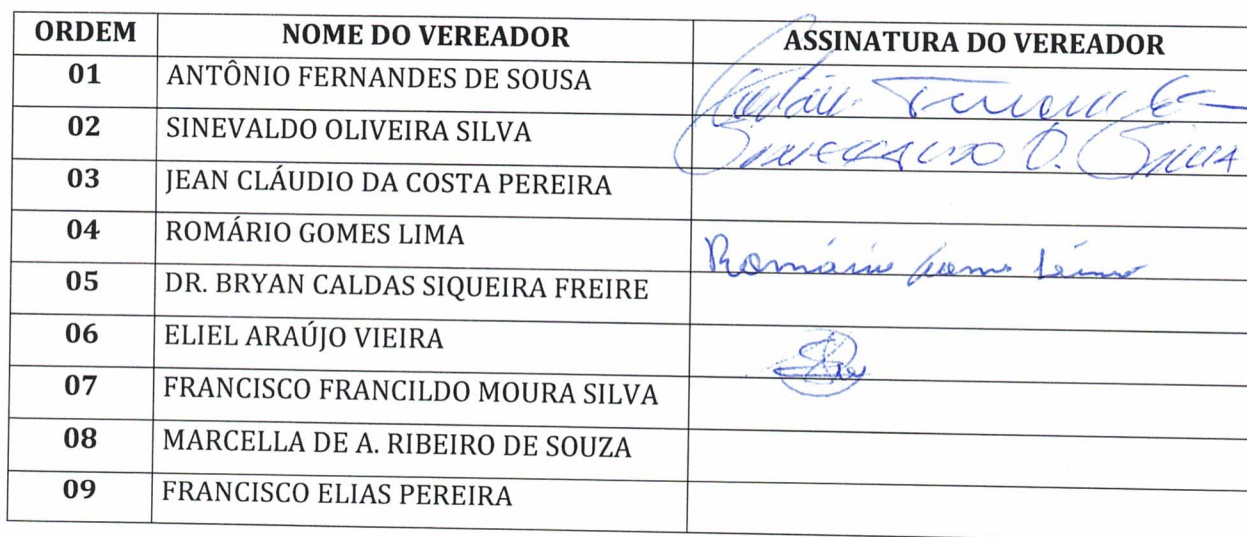 ORDEM NOME DO VEREADOR ASSINATURA DO VEREADOR
01 ANTÔNIO FERNANDES DE SOUSA
02 SINEVALDO OLIVEIRA SILVA O. Silva
03 JEAN CLÁUDIO DA COSTA PEREIRA
04 ROMÁRIO GOMES LIMA Romário Gomes Lima
05 DR. BRYAN CALDAS SIQUEIRA FREIRE
06 ELIEL ARAÚJO VIEIRA
07 FRANCISCO FRANCILDO MOURA SILVA
08 MARCELLA DE A. RIBEIRO DE SOUZA
09 FRANCISCO ELIAS PEREIRA